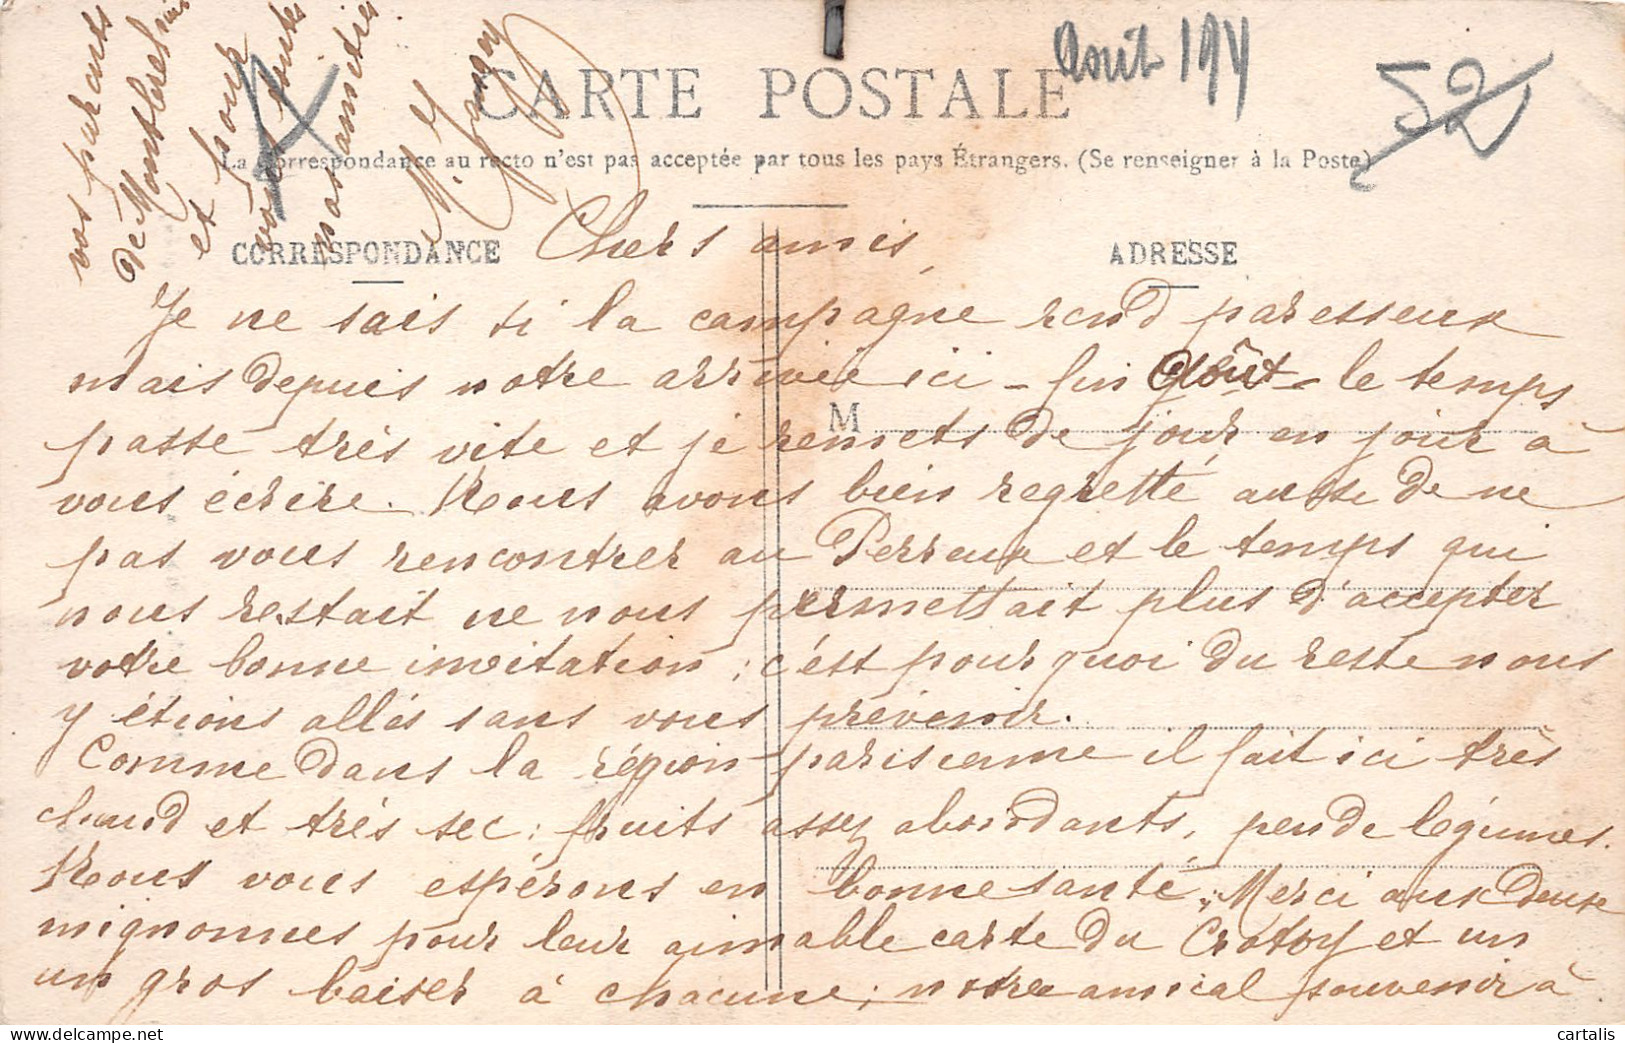 Août 194
52
CARTE POSTALE
La Correspondance au recto n'est pas acceptée par tous les pays Étrangers. (Se renseigner à la Poste)
CORRESPONDANCE
ADRESSE
M
Chers amis,
Je ne sais si la campagne rend paresseux
mais depuis notre arrivée ici - fin Août - le temps
passe très vite et je remets de jour en jour à
vous écrire. Nous avons bien regretté aussi de ne
pas vous rencontrer au Perreux et le temps qui
nous restait ne nous permettait plus d'accepter
votre bonne invitation ; c'est pourquoi du reste nous
y étions allés sans vous prévenir.
Comme dans la région parisienne il fait ici très
chaud et très sec : fruits assez abondants, peu de légumes.
Nous vous espérons en bonne santé ; Merci aux deux
mignonnes pour leur aimable carte du Crotoy et un
un gros baiser à chacune ; notre amical souvenir à
vos parents
de
et pour
vous toutes
nos amitiés
cartalis